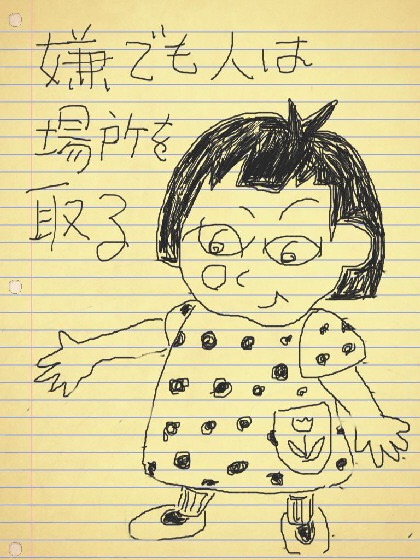 嫌でも人は
場所を
取る